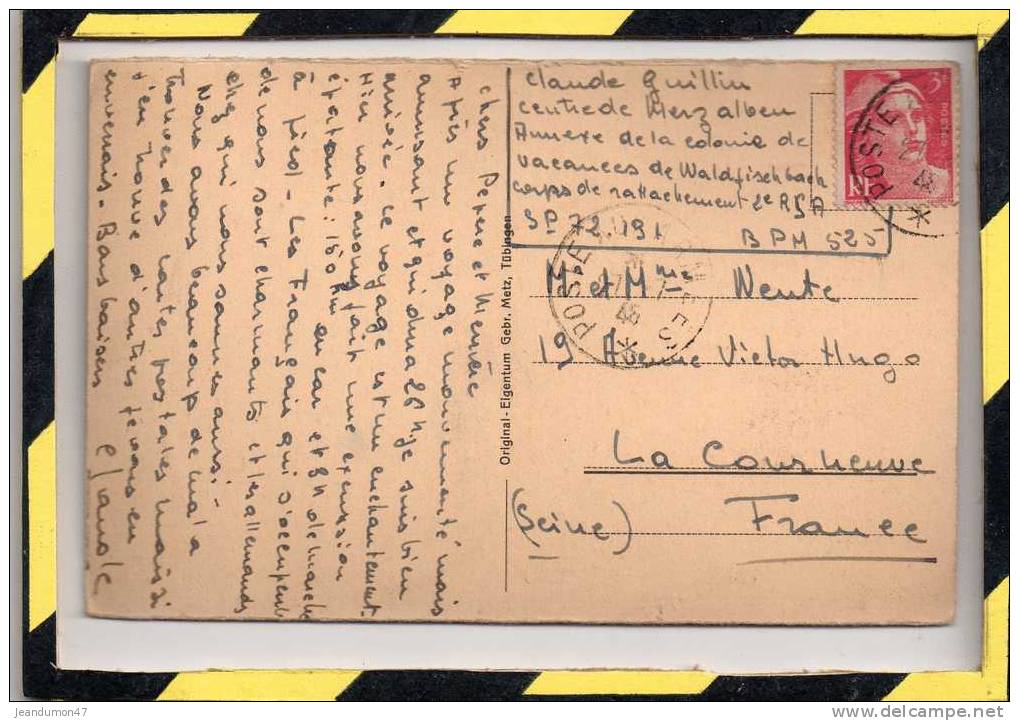 Chers Pépère et Mémère
Après un voyage mouvementé mais
amusant et qui dura 26 h, je suis bien
arrivée. ce voyage est un enchantement.
Hier nous avons fait une excursion
épatante: 150 km en car et 8h de marche
à pied. Les Français qui s'occupent
de nous sont charmants et les allemands
chez qui nous sommes aussi.
Nous avons beaucoup de mal à
trouver des cartes postales mais si
j'en trouve d'autres je vous en
enverrais. Bons baisers Claude
Original - Eigentum Gebr. Metz, Tübingen
Claude Guillin
centre de Merzalben
Annexe de la colonie de
vacances de Waldfischbach
corps de rattachement 2e RSA
SP 72.191 BPM 525
M et Mme Nente
19 Avenue Victor Hugo
La Courneuve
(Seine) France
3F
RF
POSTE
48
POSTE
48
jeandumon47
www.delcampe.net